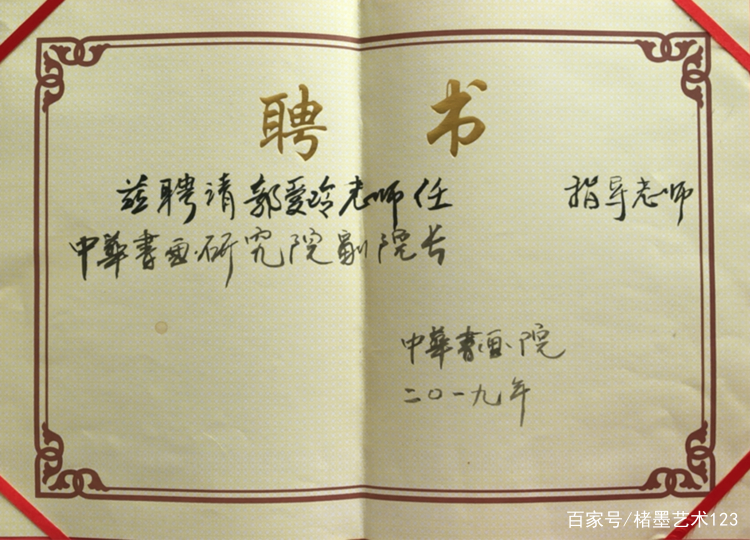 聘书
兹聘请郭爱玲老师任 指导老师
中华书画研究院副院长
中华书画院
二〇一九年
百家号/楮墨艺术123